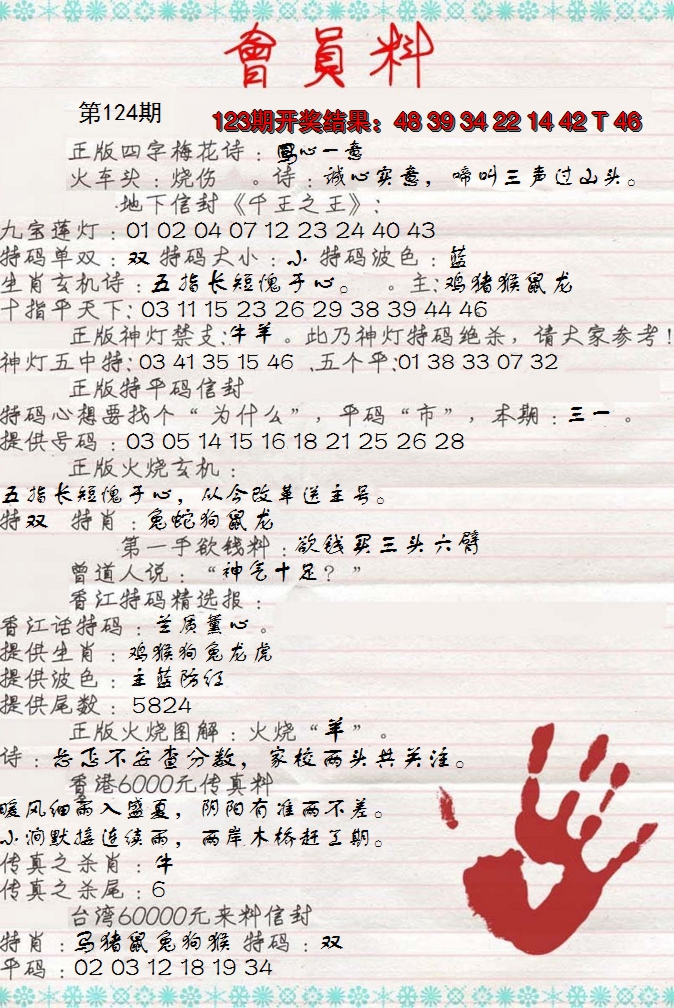 會員料
第124期
123期开奖结果：48 39 34 22 14 42 T 46
正版四字梅花诗：凤心一意
火车头：烧伤 。诗：诚心实意，啼叫三声过山头。
地下信封《千王之王》：
九宝莲灯：01 02 04 07 12 23 24 40 43
特码单双：双 特码大小：小 特码波色：蓝
生肖玄机诗：五指长短愧于心。 。主：鸡猪猴鼠龙
十指平天下：03 11 15 23 26 29 38 39 44 46
正版神灯禁支：牛羊。此乃神灯特码绝杀，请大家参考！
神灯五中特：03 41 35 15 46 、五个平：01 38 33 07 32
正版特平码信封
特码心想要找个“为什么”，平码“市”，本期：三一。
提供号码：03 05 14 15 16 18 21 25 26 28
正版火烧玄机：
五指长短愧于心，从今改革送主号。
特双 特肖：兔蛇狗鼠龙
第一手欲钱料：欲钱买三头六臂
曾道人说：“神气十足？”
香江特码精选报：
香江话特码：兰质薰心。
提供生肖：鸡猴狗兔龙虎
提供波色：主蓝防红
提供尾数：5824
正版火烧图解：火烧“羊”。
诗：忐忑不安查分数，家校两头共关注。
香港6000元传真料
暖风细雨入盛夏，阴阳有准两不差。
小涧默接连续雨，两岸木桥赶工期。
传真之杀肖：牛
传真之杀尾：6
台湾60000元来料信封
特肖：马猪鼠兔狗猴 特码：双
平码：02 03 12 18 19 34